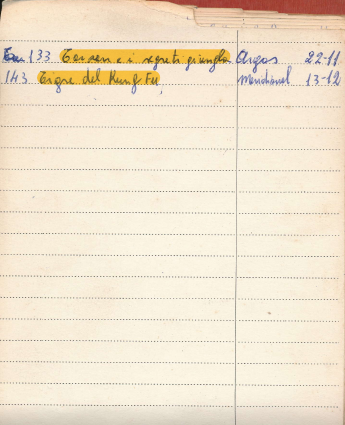 133 Tarzan e i segreti giungla Argos 22-11
143 Tigre del Kung Fu, Meridional 13-12